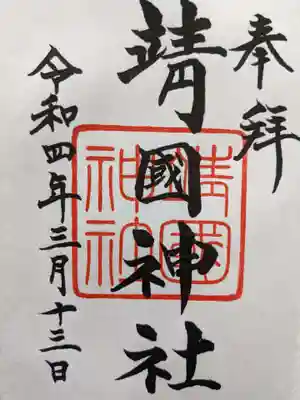 奉拝
靖國神社
靖國
神社
令和四年三月十三日